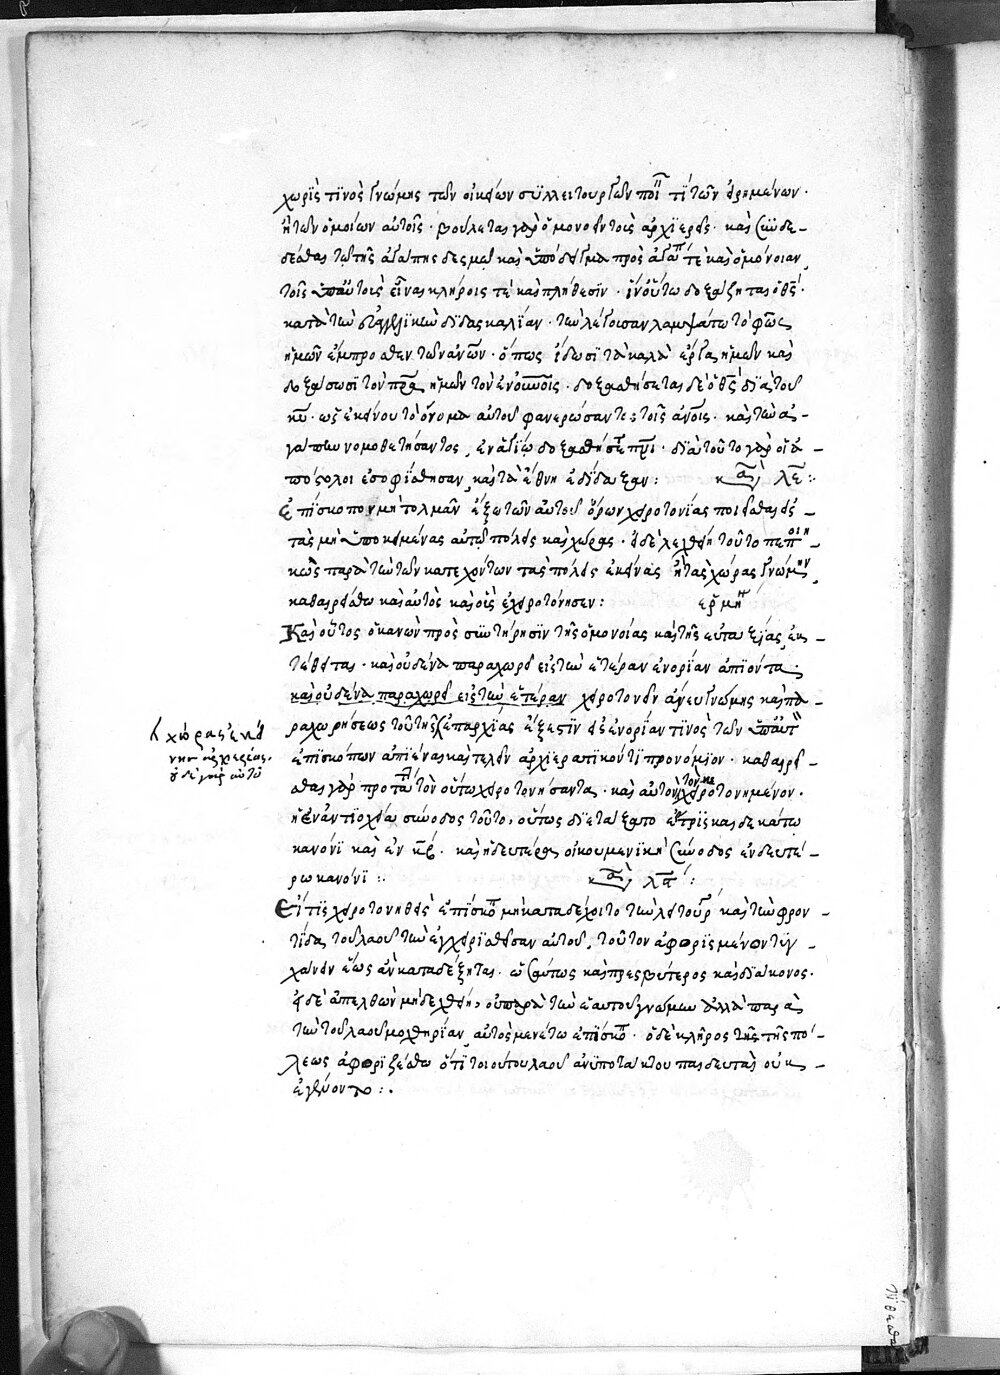 χωρὶς τινὸς γνώμης τῶν οἰκείων συλλειτουργῶν ποι τί τῶν εἰρημένων·
ἢ τῶν ὁμοίων αὐτοῖς· βούλεται γὰρ ὁ μονοῦν τοὺς ἀρχιερεῖς· καὶ συνδε-
δέσθαι τῶ τῆς ἀγάπης δεσμῶ καὶ ὑπόδειγμα πρὸς ἀγάπ τὲ καὶ ὁμόνοιαν
τοῖς ὑπ' αὐτοὺς εἶναι κλήροις τὲ καὶ πλήθεσιν· ἵν' οὕτω δοξάζηται ὁ θς·
κατὰ τὴν εὐαγγελικὴν διδασκαλίαν· τὴν λέγουσαν λαμψάτω τὸ φῶς
ἡμῶν ἔμπροσθεν τῶν ἀνων· ὅπως ἴδωσι τὰ καλὰ ἔργα ἡμῶν καὶ
δοξάσωσι τὸν πρα ἡμῶν τὸν ἐν οὐνοις· δοξασθήσεται δὲ ὁ θς διὰ τοῦ
κυ· ὡς ἐκείνου τὸ ὄνομα αὐτοῦ φανερώσαντος τοῖς ἀνοις· καὶ τὴν ἀ-
γάπην νομοθετήσαντος, ἐν ἁγίω δοξασθήσε πνι· διὰ τοῦτο γὰρ οἱ ἀ-
πόστολοι ἐσοφίσθησαν, καὶ τὰ ἔθνη ἐδίδαξαν: κα λε:
Ἐπίσκοπον μὴ τολμᾶν ἔξω τῶν αὐτοῦ ὅρων χειροτονίας ποιεῖσθαι εἰς
τὰς μὴ ὑποκειμένας αὐτῶ πόλεις καὶ χώρας· εἰ δὲ ἐλεγχθείη τοῦτο πεποιη-
κὼς παρὰ τὴν τῶν κατεχόντων τὰς πόλεις ἐκείνας ἢ τὰς χώρας γνώμην,
καθαιρείσθω καὶ αὐτὸς καὶ οὓς ἐχειροτόνησεν: ερμη
Καὶ οὗτος ὁ κανὼν πρὸς συντήρησιν τῆς ὁμονοίας καὶ τῆς εὐταξίας ἐκ-
τέθειται· καὶ οὐδένα παραχωρεῖ εἰς τὴν ἑτέραν ἐνορίαν ἀπιόντα
καὶ οὐδένα παραχωρεῖ εἰς τὴν ἑτέραν χειροτονεῖν ἄνευ γνώμης καὶ πα-
ραχωρήσεως τοῦ τῆς ἐπαρχίας ἔξεστιν εἰς ἐνορίαν τινὸς τῶν ὑπ' αὐτ
χώρας ἐκεί
νης ἀρχιερέως.
οὐδὲ γὰρ αὐτῶ
ἐπισκόπων ἀπιέναι καὶ τελεῖν ἀρχιερατικόν τι προνόμιον· καθαιρεῖ-
σθαι γὰρ προστάττει τὸν οὕτω χειροτονήσαντα· καὶ αὐτὸν τὸν κεχειροτονημένον·
ἡ ἐν ἀντιοχεία σύνοδος τοῦτο, οὕτως διετάξατο ἐν τρισκαιδεκάτω
κανόνι καὶ ἐν κβ· καὶ ἡ δευτέρα οἰκουμενικὴ σύνοδος ἐν δευτέ-
ρω κανόνι: κα λς:
Εἴ τις χειροτονηθεὶς ἐπίσκο μὴ καταδέχοιτο τὴν λειτουρ καὶ τὴν φρον-
τίδα τοῦ λαοῦ τὴν ἐγχειρισθεῖσαν αὐτοῦ, τοῦτον ἀφωρισμένον τυγ-
χάνειν ἕως ἂν καταδέξηται· ὡσαύτως καὶ πρεσβύτερος καὶ διάκονος·
εἰ δὲ ἀπελθὼν μὴ δεχθείη, οὐ παρὰ τὴν ἑαυτοῦ γνώμην ἀλλὰ παρὰ
τὴν τοῦ λαοῦ μοχθηρίαν, αὐτὸς μενέτω ἐπίσκο· ὁ δὲ κλῆρος τῆς πό-
λεως ἀφοριζέσθω ὅτι τοιούτου λαοῦ ἀνυποτάκτου παιδευταὶ οὐκ
ἐγένοντο:.